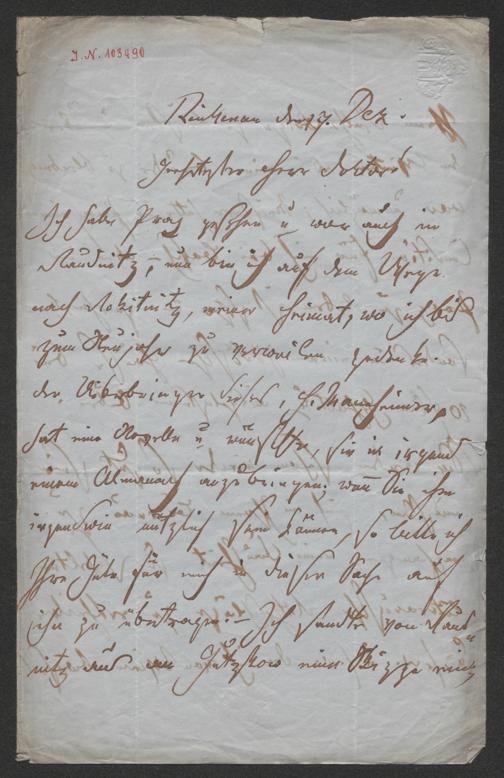 I. N. 103490
Reichenau den 7. Dez.
Geehrtester Herr Doktor!
Ich habe Prag gesehen u war auch in
Raudnitz, nun bin ich auf dem Wege
nach Rokitnitz, meiner Heimat, wo ich bis
zum Neujahr zu verweilen gedenke.
der Überbringer dieses, H. Mannheimer,
hat eine Novelle u wünschte, sie in irgend
einem Almanach anzubringen; wenn Sie ihm
irgendwie nützlich sein können, so bitte ich
Ihre Güte für mich in dieser Sache auch
ihn zu übertragen. – Ich sandte von Raud
nitz aus an Gutzkow eine Skizze